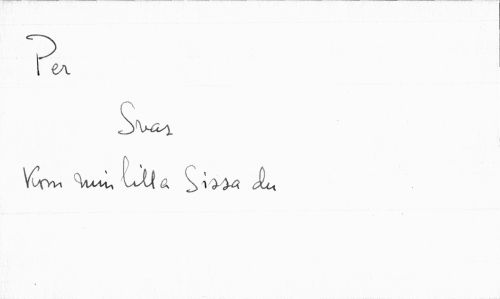 Per
Svar
Kom min lilla Sissa du